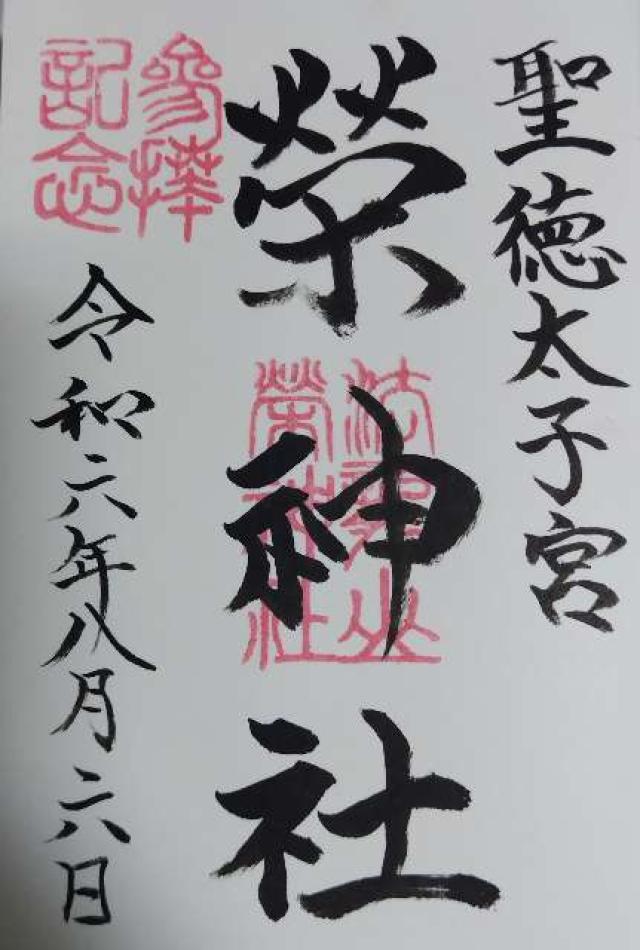 聖徳太子宮
榮神社
榮神社
參拝
記念
令和六年八月六日